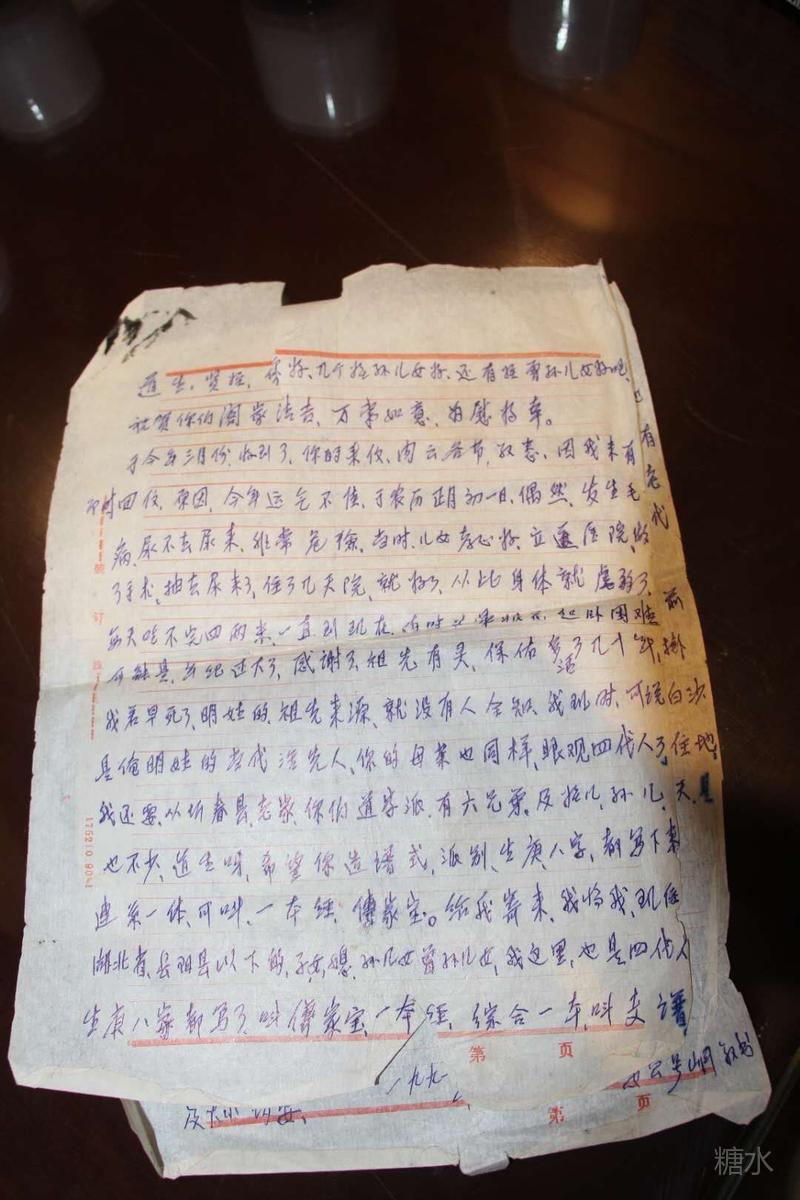 道生,贤侄,你好、几个侄孙儿女好、还有侄曾孙儿女好吧、
祝贺你们阖家活吉,万事如意,为慰
于今年三月份,收到了,你的来信,内云各节,敬悉、因我未有
即时回信,原因,今年运气不佳、于农历正月初一日、偶然,发生毛
病、尿不出尿来、非常危险、当时、儿女孝心好、立送医院、做
了手术、抽去尿来了、住了几天院、就好了、从此身体就虚弱了、
每天吃不完四两米、一直到现在、起卧困难
可能是、年纪过大了、感谢了祖先有灵、保佑多活了几十年,
我若早死了、明娃的祖先来源、就没有人全知、我现时、可说白沙
是俺明娃的老代活先人、你的母亲也同样、眼观四代人了、住地
我还要、从圻春县、老家、你们道字派、有六兄弟、及侄儿、孙儿、天、
也不少、道生呀、希望你造谱式、派别、生庚、八字、都写下来
连系一体、可叫、一本经、传家宝。给我寄来、我将我、现住
湖北省、县以下的、子女、媳、孙儿女、曾孙儿女、我这里、也是四代人
生庚八字都写了、叫传家宝、一本经、综合一本、叫支谱
第 页
一九九
及大小 安、
第 页
有
老
代
前
订
线
175210.9061
糖水